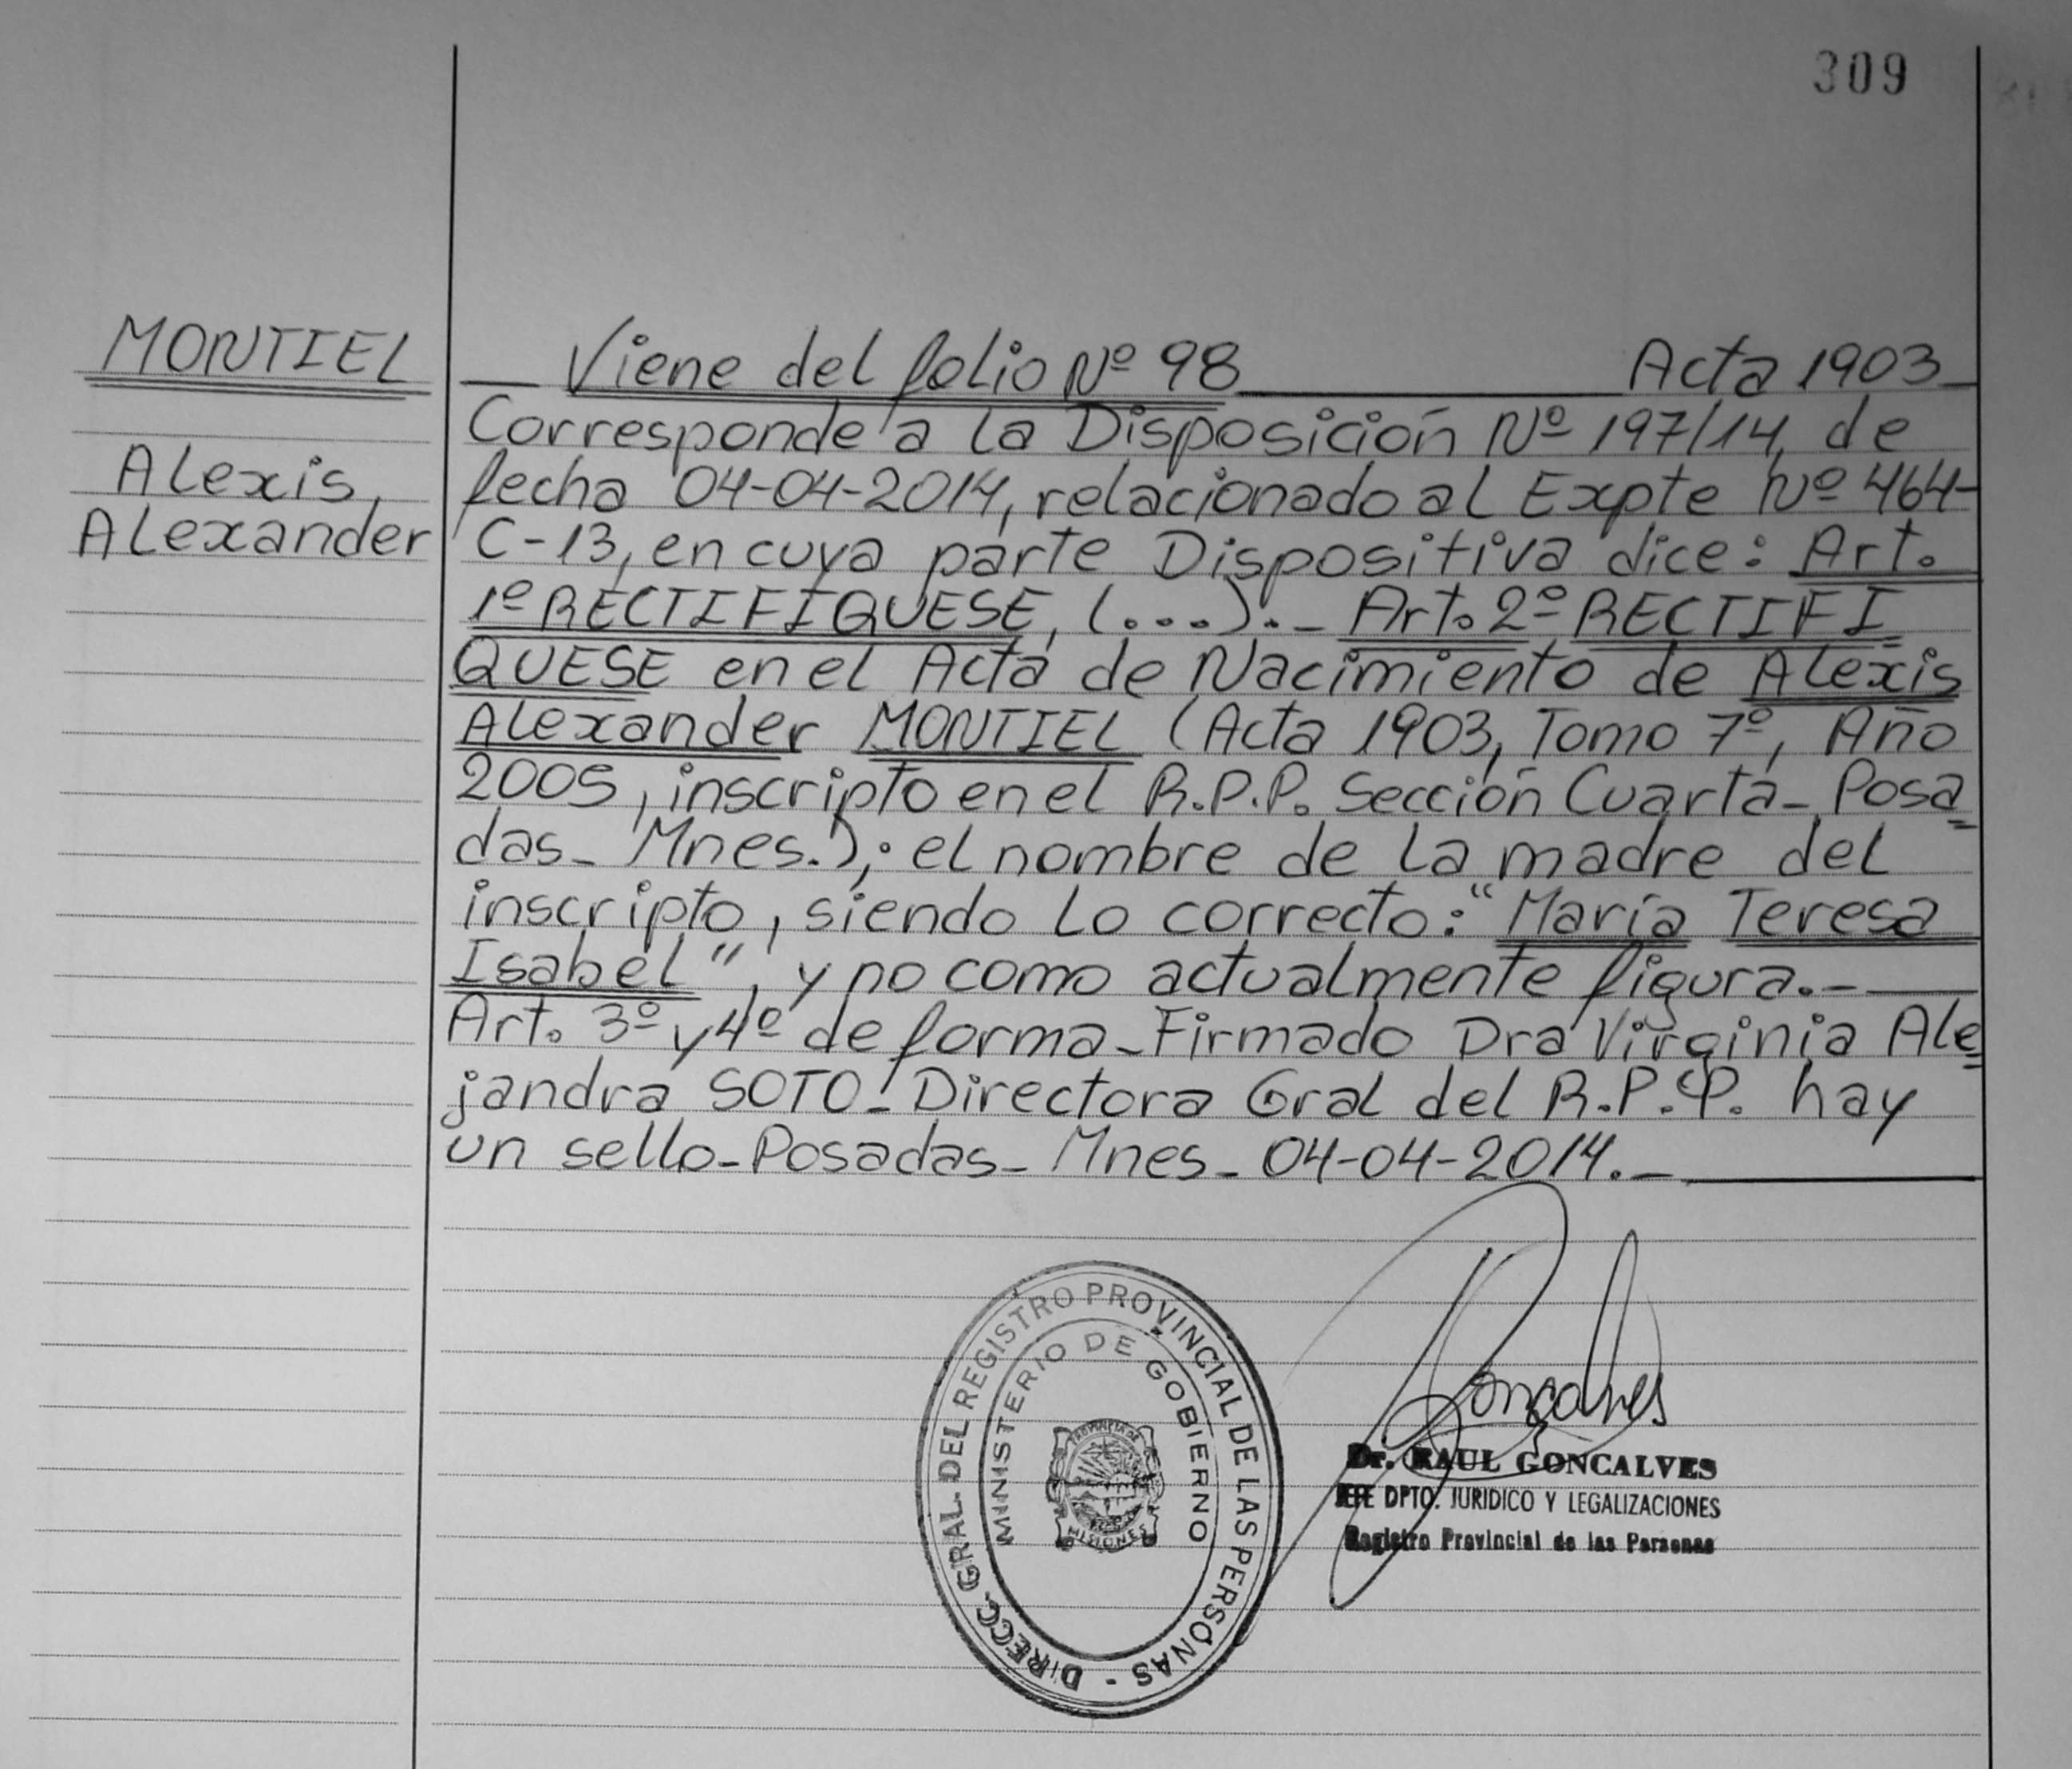 309
MONTIEL
Alexis,
Alexander
Viene del folio Nº 98 Acta 1903
Corresponde a la Disposición Nº 197/14, de
fecha 04-04-2014, relacionado al Expte Nº 464-
C-13, en cuya parte Dispositiva dice: Art.
1º RECTIFIQUESE, (...).- Art. 2º RECTIFI
QUESE en el Acta de Nacimiento de Alexis
Alexander MONTIEL (Acta 1903, Tomo 7º, Año
2005, inscripto en el R.P.P. Sección Cuarta- Posa=
das- Mnes.); el nombre de la madre del
inscripto, siendo lo correcto: "María Teresa
Isabel", y no como actualmente figura.-
Art. 3º y 4º de forma-Firmado Dra Virginia Ale=
jandra SOTO-Directora Gral del R.P.P. hay
un sello-Posadas- Mnes- 04-04-2014.-
DIRECC. GRAL. DEL REGISTRO PROVINCIAL DE LAS PERSONAS -
MINISTERIO DE GOBIERNO
PROVINCIA DE
MISIONES
Goncalves
Dr. RAUL GONCALVES
JEFE DPTO. JURIDICO Y LEGALIZACIONES
Registro Provincial de las Personas